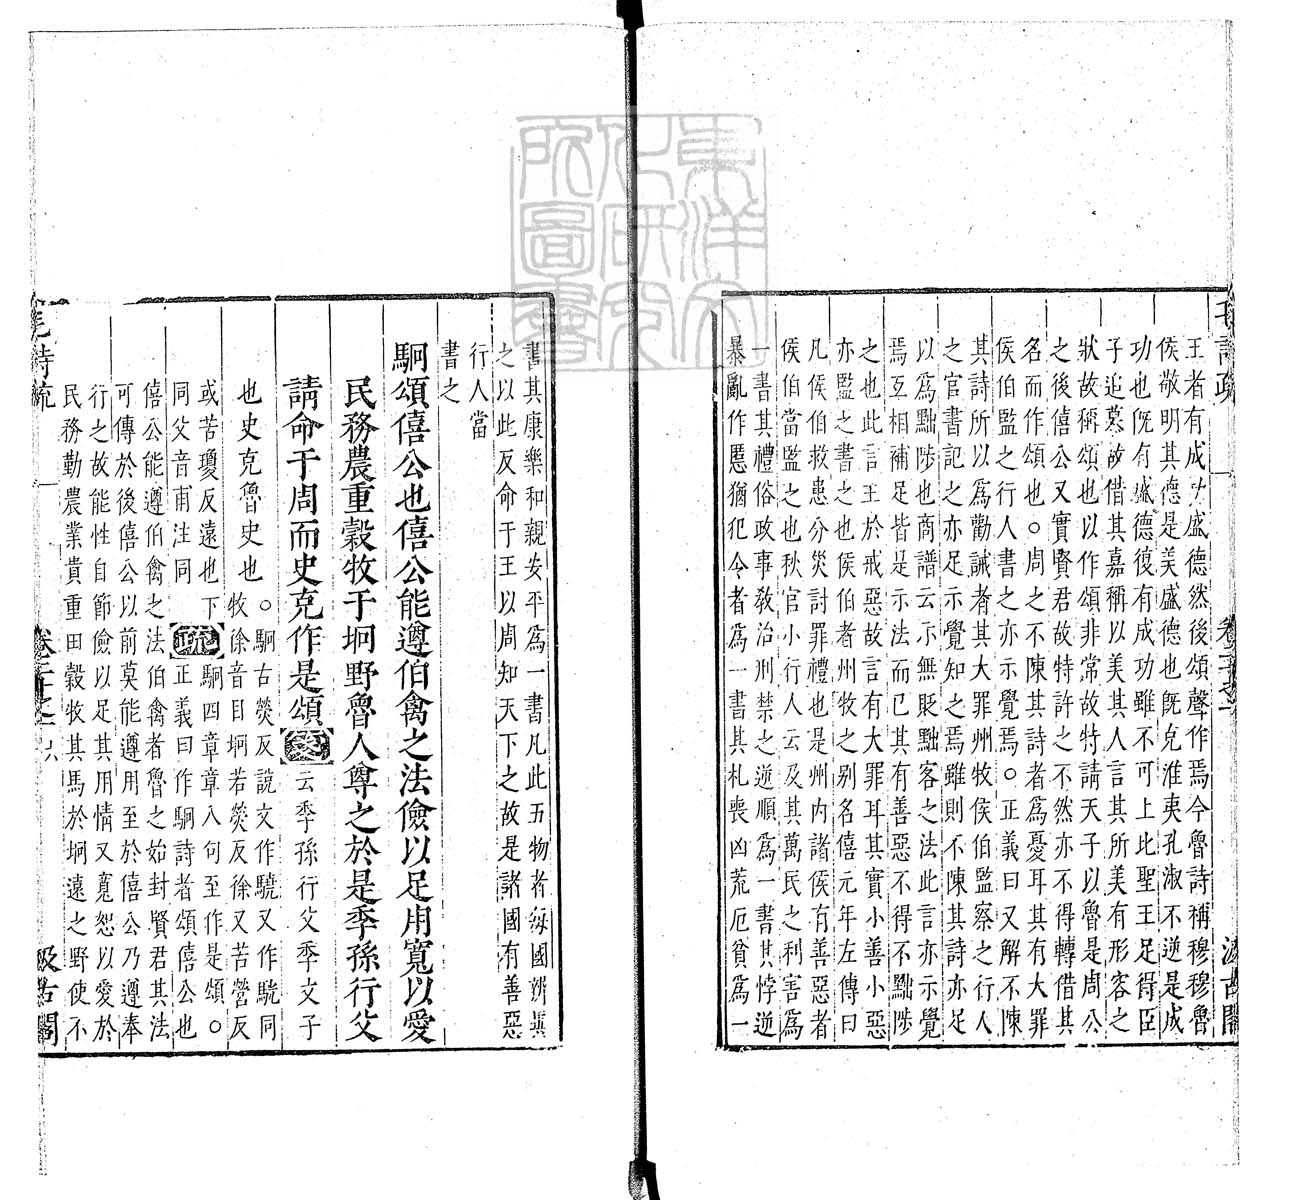 王者有成功盛德然後頌聲作焉今魯詩稱穆穆魯
侯敬明其德是美盛德也旣克淮夷孔淑不逆是成
功也旣有盛德復有成功雖不可上比聖王足得臣
子追慕故借其嘉稱以美其人言其所美有形容之
狀故稱頌也以作頌非常故特請天子以魯是周公
之後僖公又實賢君故特許之不然亦不得轉借其
名而作頌也。周之不陳其詩者爲憂耳其有大罪
侯伯監之行人書之亦示覺焉。正義曰又解不陳
其詩所以爲勸誡者其大罪州牧侯伯監察之行人
之官書記之亦足示覺知之焉雖則不陳其詩亦足
以爲黜陟也商譜云亦無貶黜客之法此言亦示覺
焉互相補足皆是示法而已其有善惡不得不黜陟
之也此言王於戒惡故言有大罪耳其實小善小惡
亦監之書之也侯伯者州牧之别名僖元年左傳曰
凡侯伯救患分災討罪禮也是州内諸侯有善惡者
侯伯當監之也秋官小行人云及其萬民之利害爲
一書其禮俗政事敎治刑禁之逆順爲一書其悖逆
暴亂作慝猶犯令者爲一書其札喪凶荒厄貧爲一
書其康樂和親安平爲一書凡此五物者每國辨異
之以此反命于王以周知天下之故是諸國有善惡
行人當
書之
駉頌僖公也僖公能遵伯禽之法儉以足用寬以愛
民務農重穀牧于坰野魯人尊之於是季孫行父
請命于周而史克作是頌箋云季孫行父季文子
也史克魯史也。駉古熒反說文作驍又作駫同
牧徐音目坰若熒反徐又苦營反
或苦瓊反遠也下
同父音甫注同
疏正義曰作駉詩者頌僖公也
駉四章章八句至作是頌。
僖公能遵伯禽之法伯禽者魯之始封賢君其法
可傳於後僖公以前莫能遵用至於僖公乃遵奉
行之故能性自節儉以足其用情又寬恕以愛於
民務勤農業貴重田穀牧其馬於坰遠之野使不
毛詩疏
卷二十之一
六
汲古閣